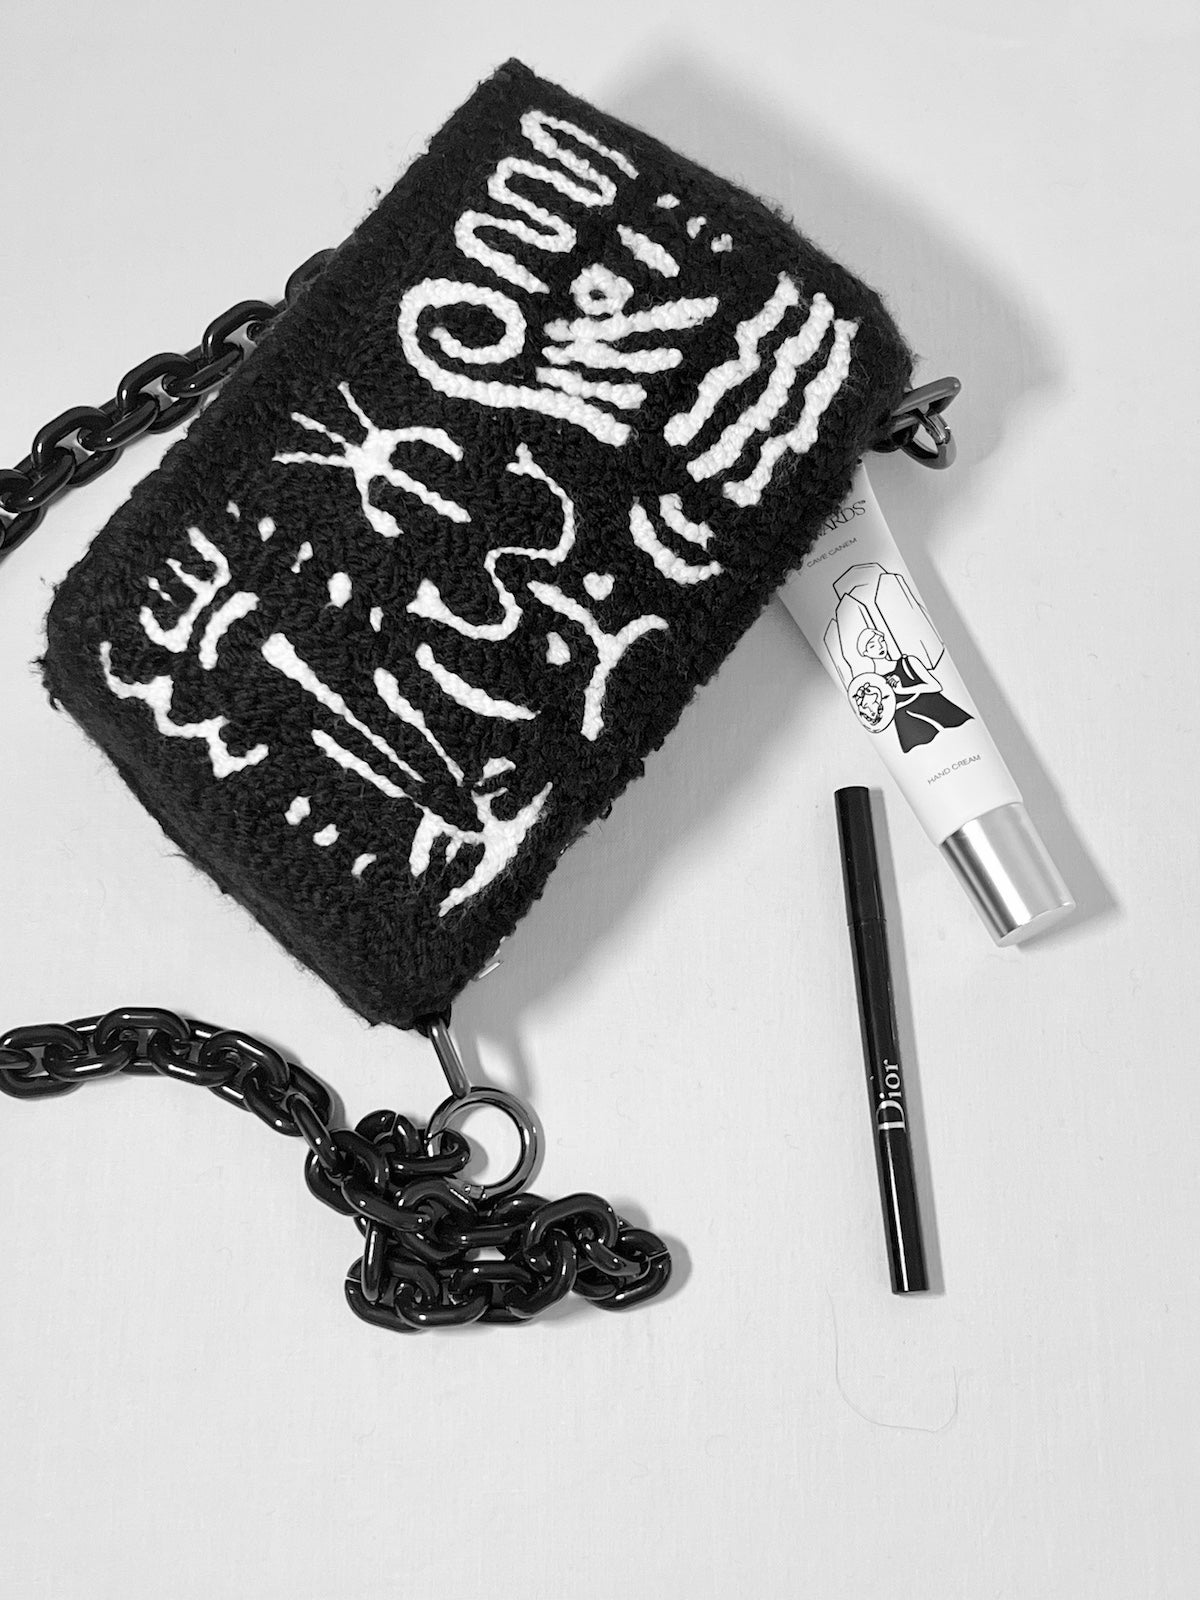 CAVE CANEM
HAND CREAM
Dior